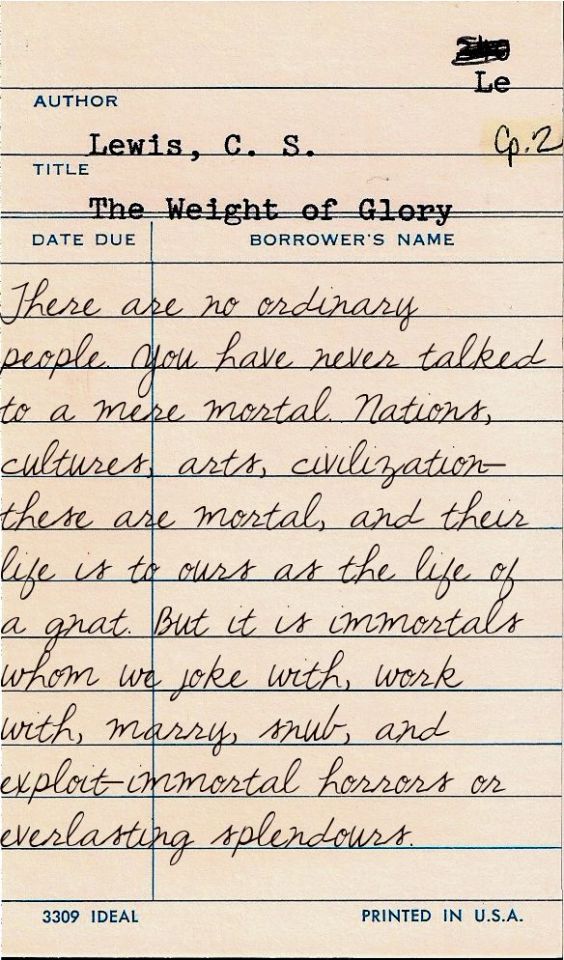 Le
AUTHOR
Lewis, C. S.
Cp.2
TITLE
The Weight of Glory
DATE DUE BORROWER'S NAME
There are no ordinary
people. You have never talked
to a mere mortal. Nations,
cultures, arts, civilization—
these are mortal, and their
life is to ours as the life of
a gnat. But it is immortals
whom we joke with, work
with, marry, snub, and
exploit—immortal horrors or
everlasting splendours.
3309 IDEAL PRINTED IN U.S.A.